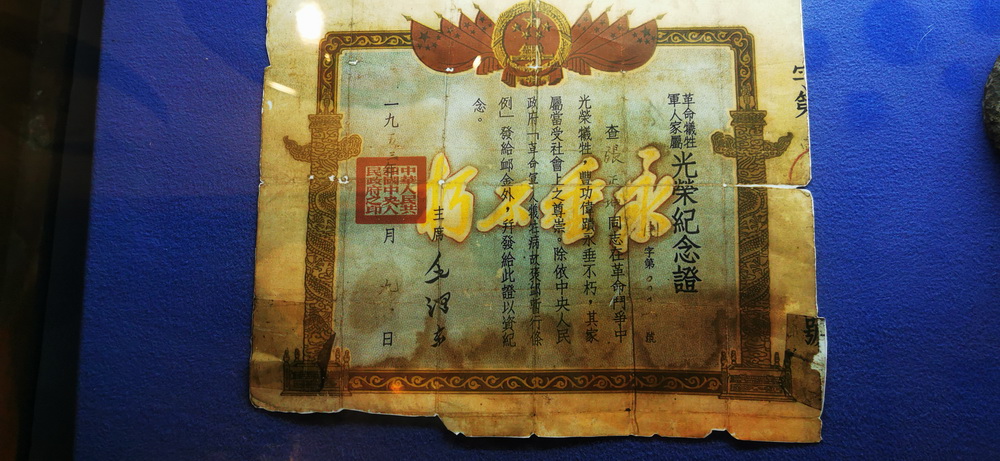 革命犧牲
軍人家屬
光榮紀念證
字第 號
查張正 同志在革命鬥爭中
光榮犧牲，豐功偉績永垂不朽，其家
屬當受社會上之尊崇。除依中央人民
政府「革命軍人犧牲病故褒卹暫行條
例」發給卹金外，并發給此證以資紀
念。
主席 毛澤東
一九五三年 月 九日
中華人民共
和國中央人
民政府之印
永垂不朽